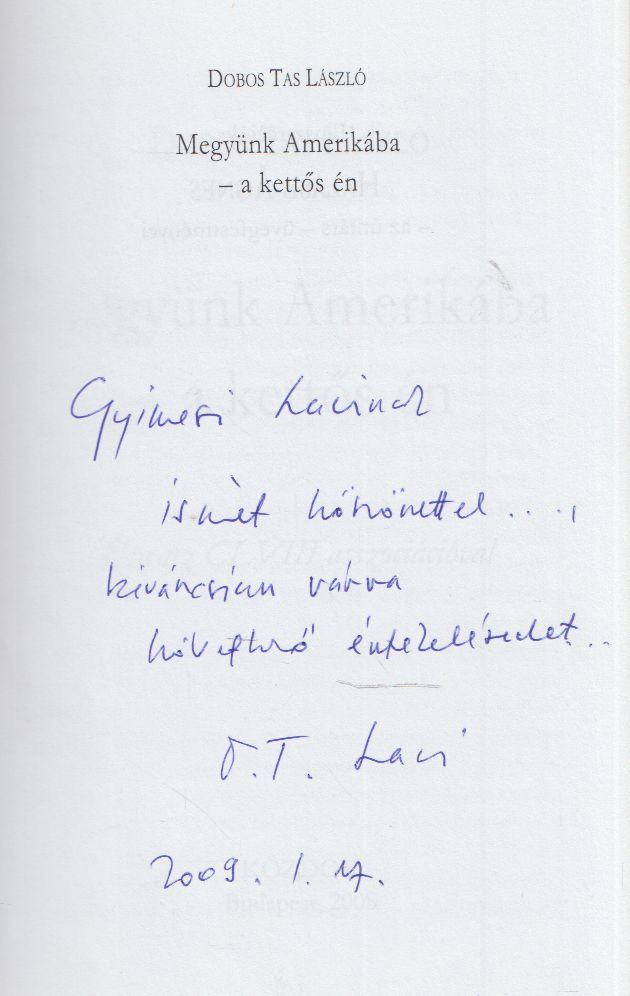 DOBOS TAS LÁSZLÓ
Megyünk Amerikába
– a kettős én
Gyimesi Lacinak
ismét köszönettel....,
kíváncsian várva
következő értékelésedet..
D.T. Laci
2009. 1. 17.